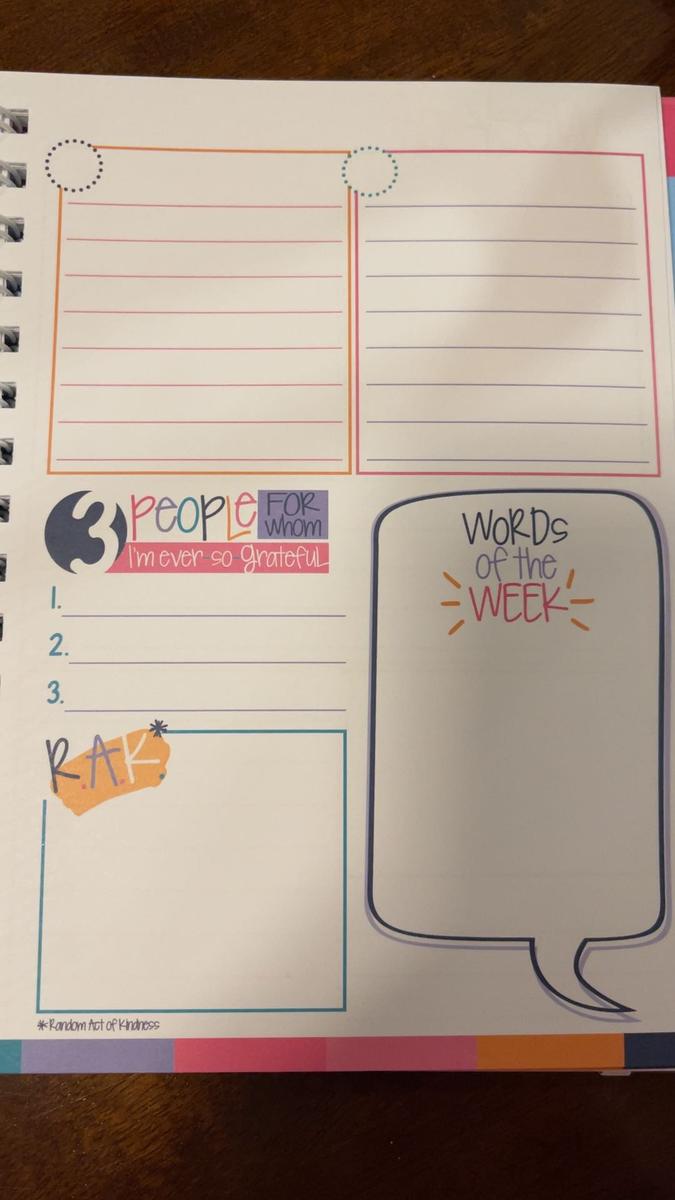 3 PEOPLE FOR whom
I'm ever so grateful
1.
2.
3.
R.A.K.*
*Random Act of Kindness
WORDs
of the
WEEK